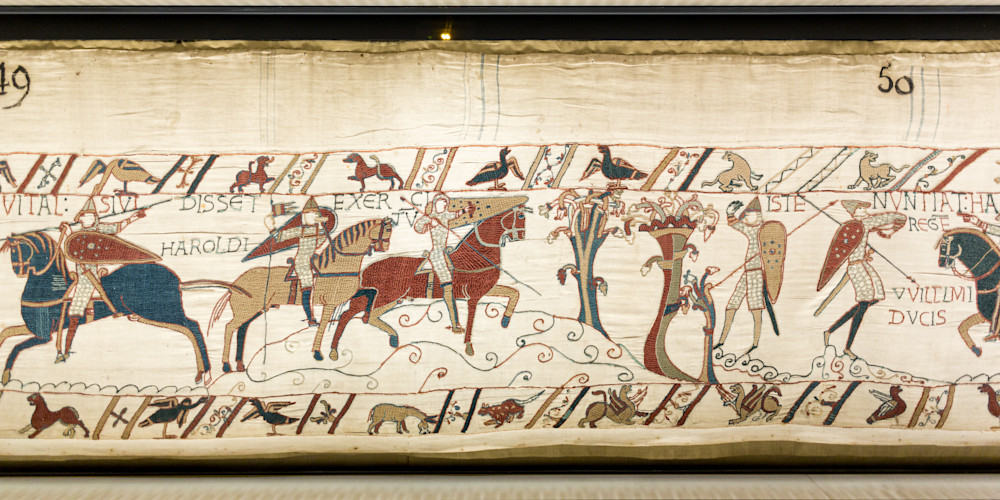 49
50
VITAL: SIVI DISSET EXERCI
TV
HAROLDI
ISTE NVNTIAT: HA
REGE
VVILLELMI
DVCIS